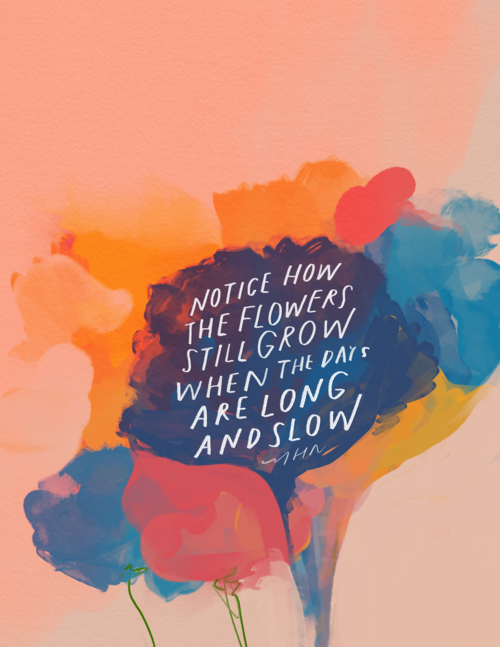 NOTICE HOW
THE FLOWERS
STILL GROW
WHEN THE DAYS
ARE LONG
AND SLOW
MHN